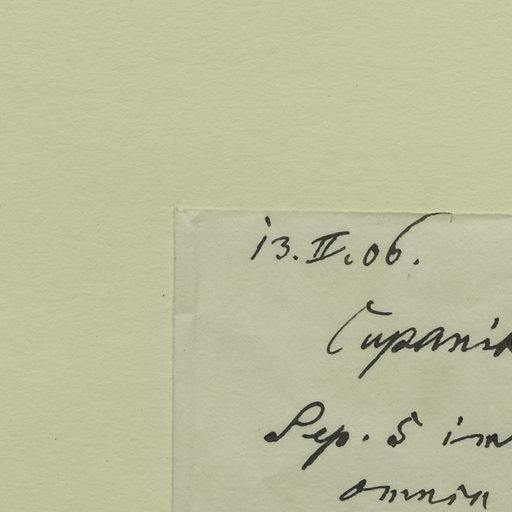 13.II.06.
Cupania
Sep. 5 im
omnin